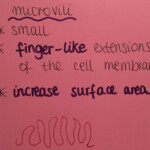 microvili
* small
* finger-like extensions
of the cell membran
* increase surface area